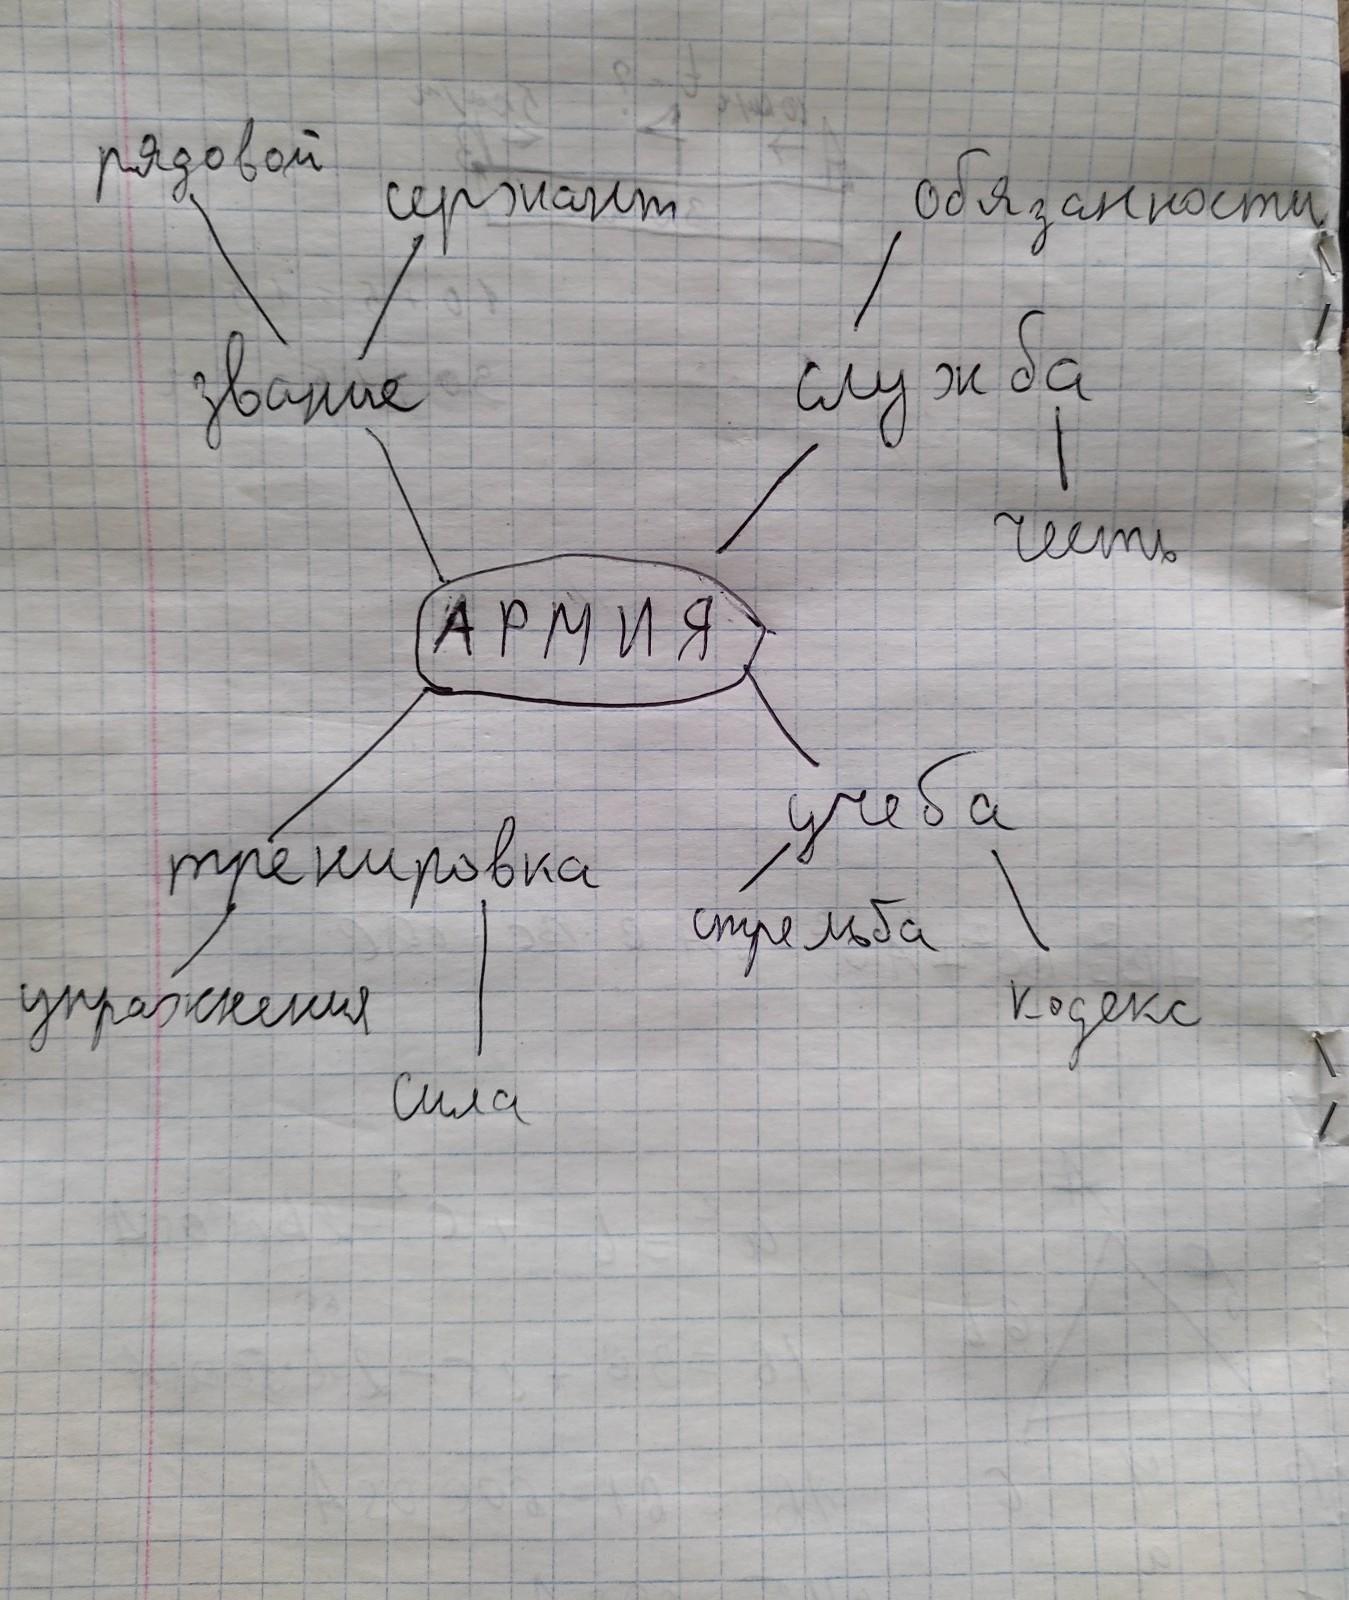 рядовой
сержант
обязанности
звание
служба
честь
АРМИЯ
учеба
тренировка
стрельба
упражнения
кодекс
сила